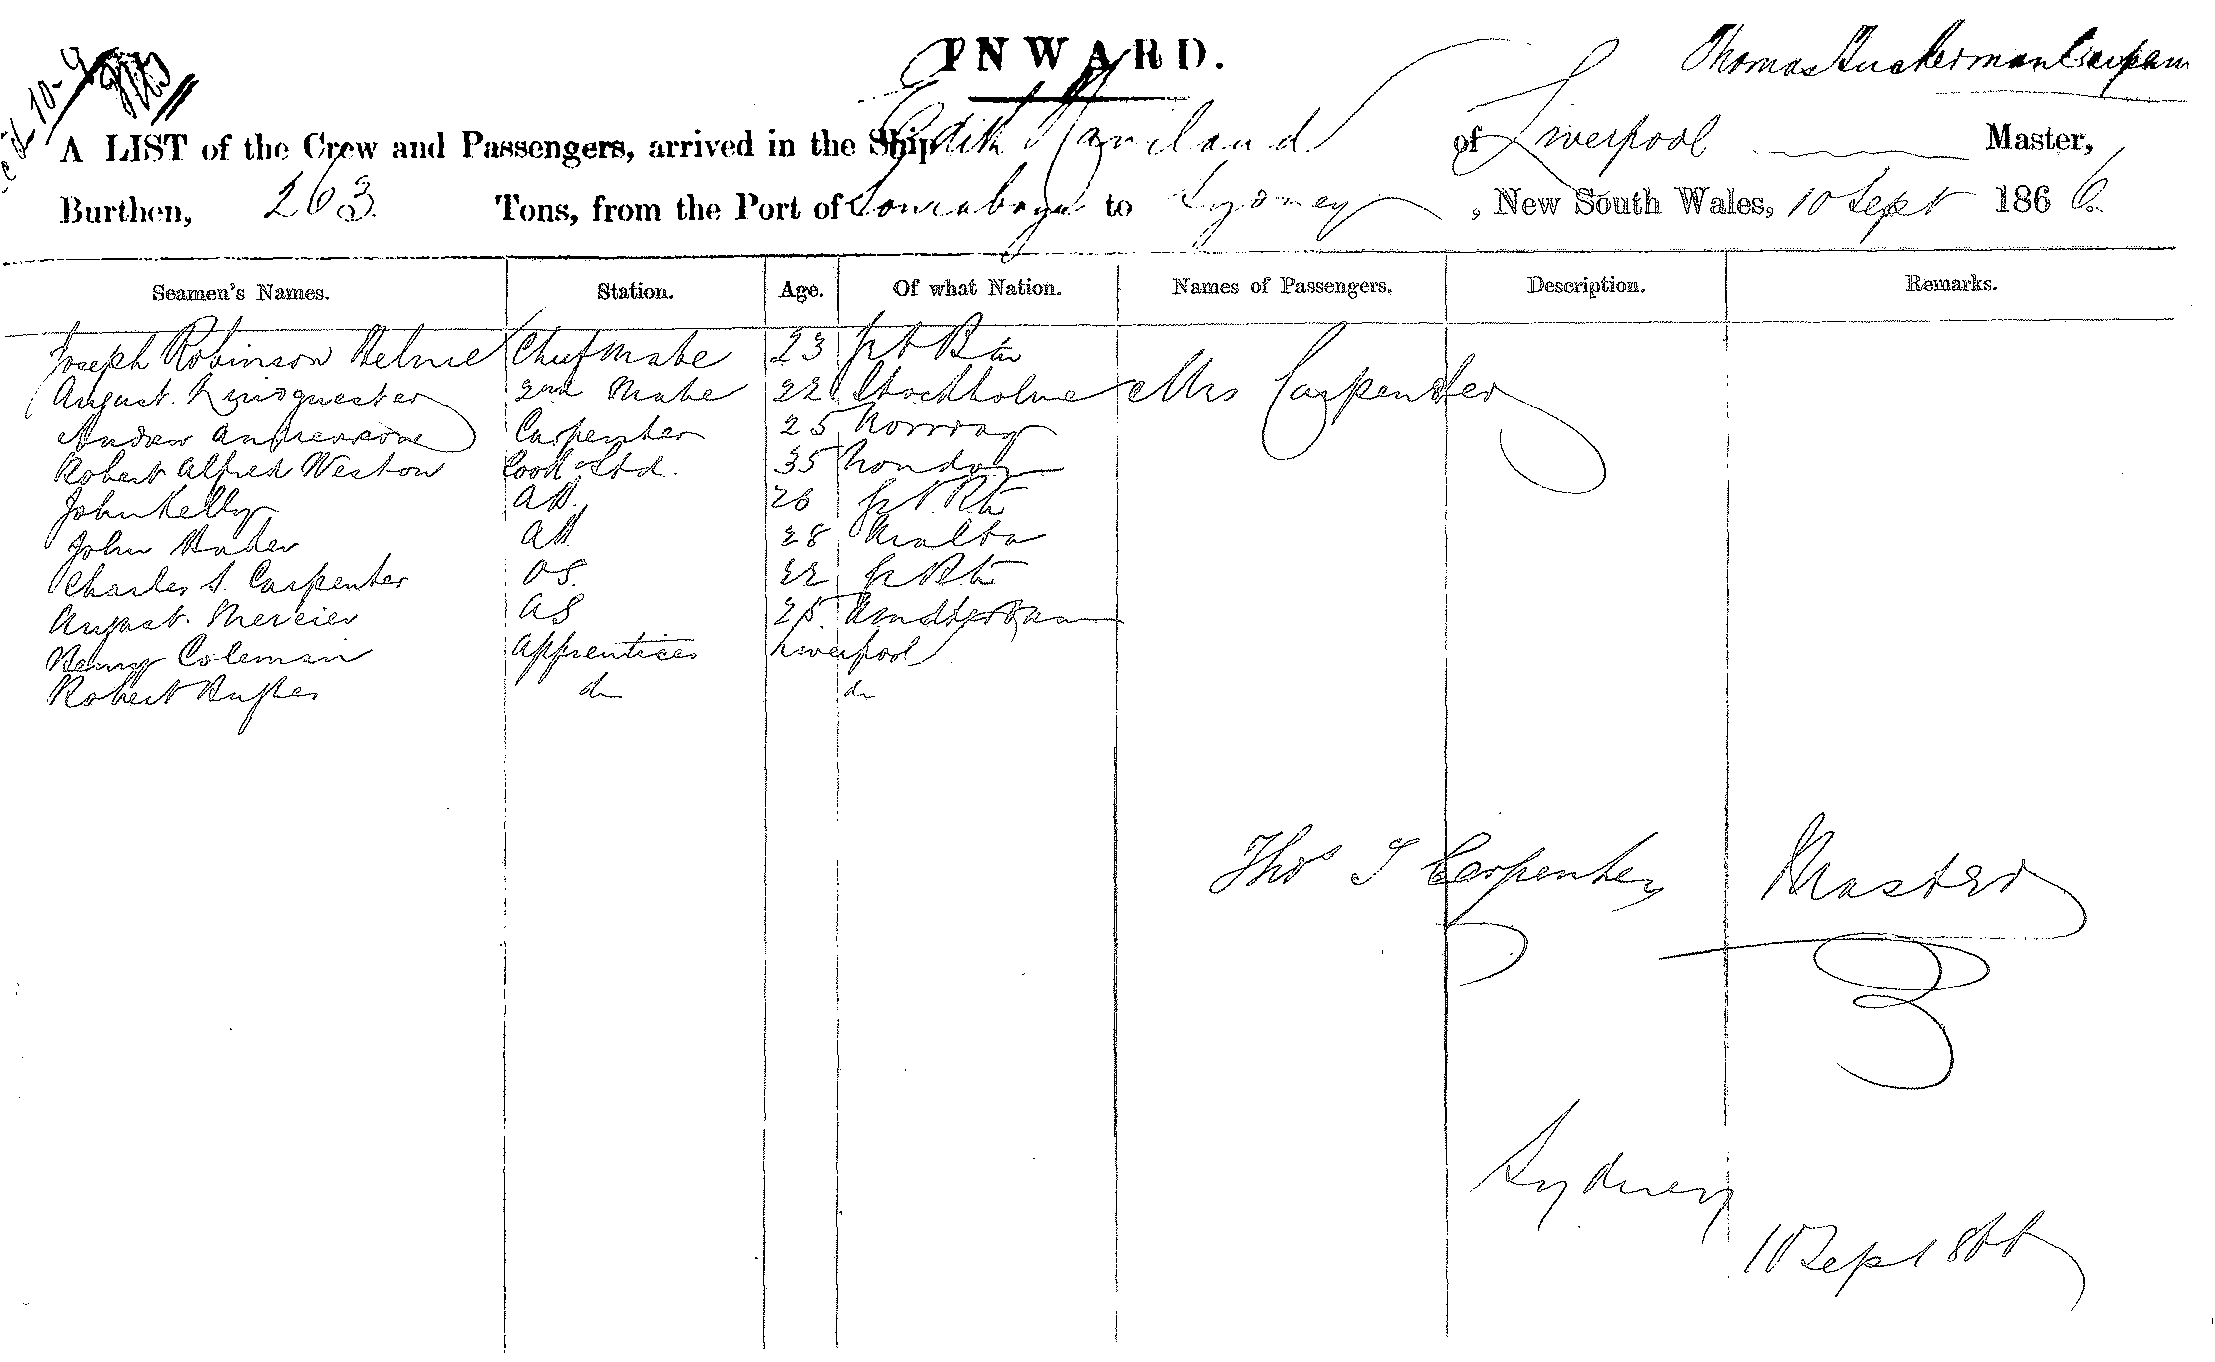 INWARD.
Thomas Tuckerman Carpen
10-9
A LIST of the Crew and Passengers, arrived in the Ship Edith Haviland of Liverpool Master,
Burthen, 263 Tons, from the Port of Sourabaya to Sydney, New South Wales, 10 Sept 1866.
Seamen's Names. Station. Age. Of what Nation. Names of Passengers. Description. Remarks.
Joseph Robinson Chief Mate 23 Gt Bn
August. 2nd Mate 22 Stockholme Mrs Carpenter
Andrew Carpenter 25 Norway
Robert Alfred Weston Cook Std. 35 London
John Kelly AB. 26 Gt Bn
John Baker AB 28 Malta
Charles S. Carpenter OS. 22 Gt Bn
August. Mercier AS 25 Amsterdam
Henry Coleman Apprentices Liverpool
Robert do do
Thos T Carpenter Master
Sydney
10 Sept 1866